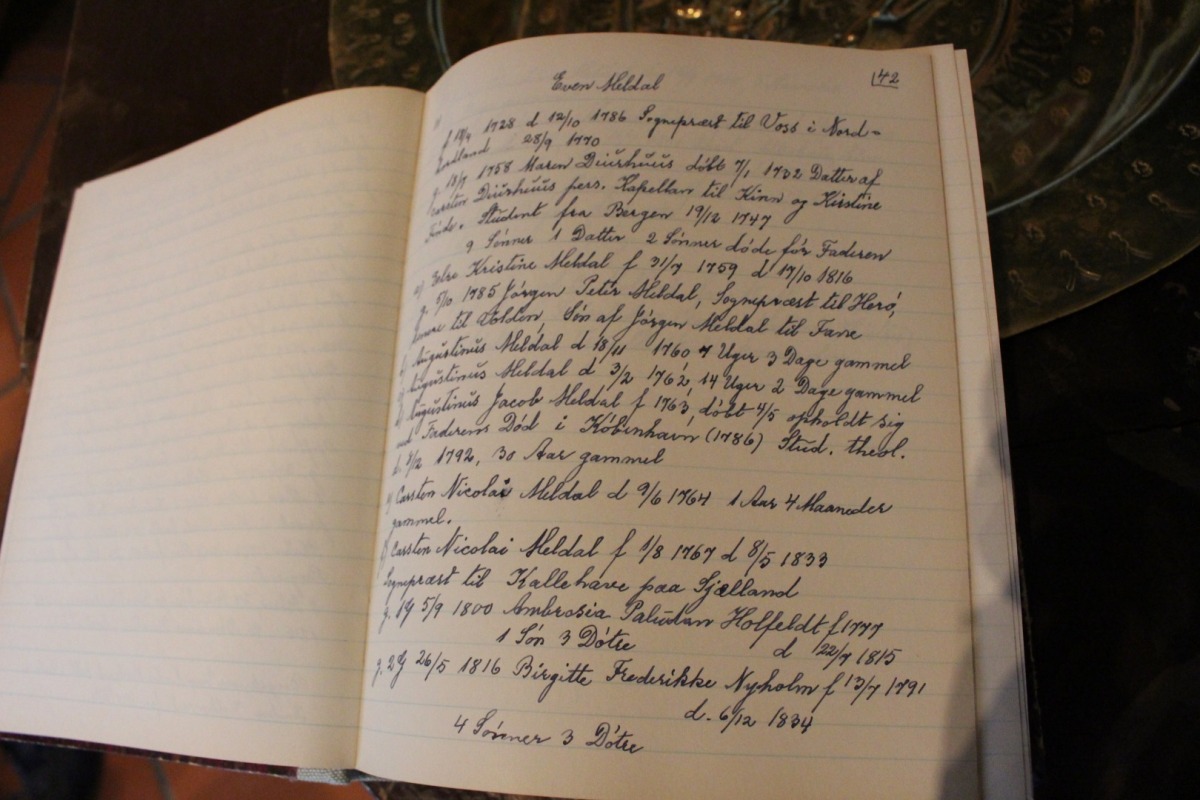 Even Meldal
42
f 19/9 1728 d 12/10 1786 Sognepræst til Voss i Nord=
Hordland 28/9 1770
g. 18/7 1758 Maren Diürhüüs döbt 7/1 1732 Datter af
Carsten Diürhüüs pers. Kapellan til Kinn og Kirstine
Finde. Stüdent fra Bergen 19/12 1747
9 Sönner 1 Datter 2 Sönner döde för Faderen
a) Kristine Meldal f 31/7 1759 d 17/10 1816
g. 5/10 1785 Jörgen Peter Meldal, Sognepræst til Herö,
senere til Sön af Jörgen Meldal til
b) Aügüstinüs Meldal d 18/11 1760 7 Uger 3 Dage gammel
c) Aügüstinüs Meldal d 3/2 1762, 14 Uger 2 Dage gammel
d) Aügüstinüs Jacob Meldal f 1763, döbt 4/5 opholdt sig
ved Faderens Död i Köbenhavn (1786) Stüd. theol.
d. 1792, 30 Aar gammel
e) Carsten Nicolai Meldal d 9/6 1764 1 Aar 4 Maaneder
gammel.
f) Carsten Nicolai Meldal f 1/8 1767 d 8/5 1833
Sognepræst til Kallehave paa Sjælland
g. 1G 5/9 1800 Ambrosia Palüdan Holfeldt f 1777
1 Sön 3 Dötre d 22/7 1815
g. 2G 26/5 1816 Birgitte Frederikke Nyholm f 13/7 1791
d. 6/12 1834
4 Sönner 3 Dötre